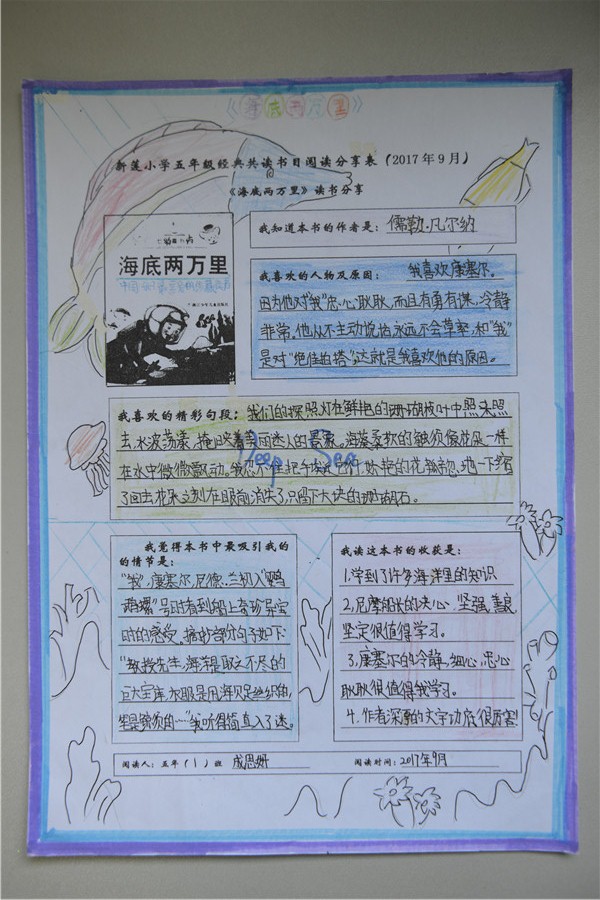 《海底两万里》
新莲小学五年级经典共读书目阅读分享表（2017年9月）
《海底两万里》读书分享
海底两万里
我知道本书的作者是：儒勒·凡尔纳
我喜欢的人物及原因：我喜欢康塞尔。
因为他对“我”忠心耿耿，而且有勇有谋，冷静
非常。他从不主动说话，永远不会草率，和“我”
是对“绝佳拍搭”，这就是我喜欢他的原因。
我喜欢的精彩句段：我们的探照灯在鲜艳的珊瑚枝叶中照来照
去，水波荡漾，掩映着美丽迷人的景象。海葵柔软的触须像花朵一样
在水中微微飘动。我忍不住把手
娇艳的花瓣
了回去，花朵立刻在眼前消失了，只留下大块的珊瑚石。
Deep Sea
我觉得本书中最吸引我的
的情节是：
“我”、康塞尔、尼德·兰初入“鹦
鹉螺”号时看到船上奇珍异宝
时的感受。摘抄部分句子如下：
“教授先生，海洋是取之不尽的
巨大宝库，衣服是用海贝足丝织的，
“我听得简直入了迷。
我读这本书的收获是：
1.学到了许多海洋里的知识
2.尼摩船长的决心、坚强、善良、
坚定很值得学习。
3.康塞尔的冷静，细心，忠心
耿耿很值得我学习。
4.作者深厚的文字功底很厉害！
阅读人：五年（1）班 成思妍 阅读时间：2017年9月